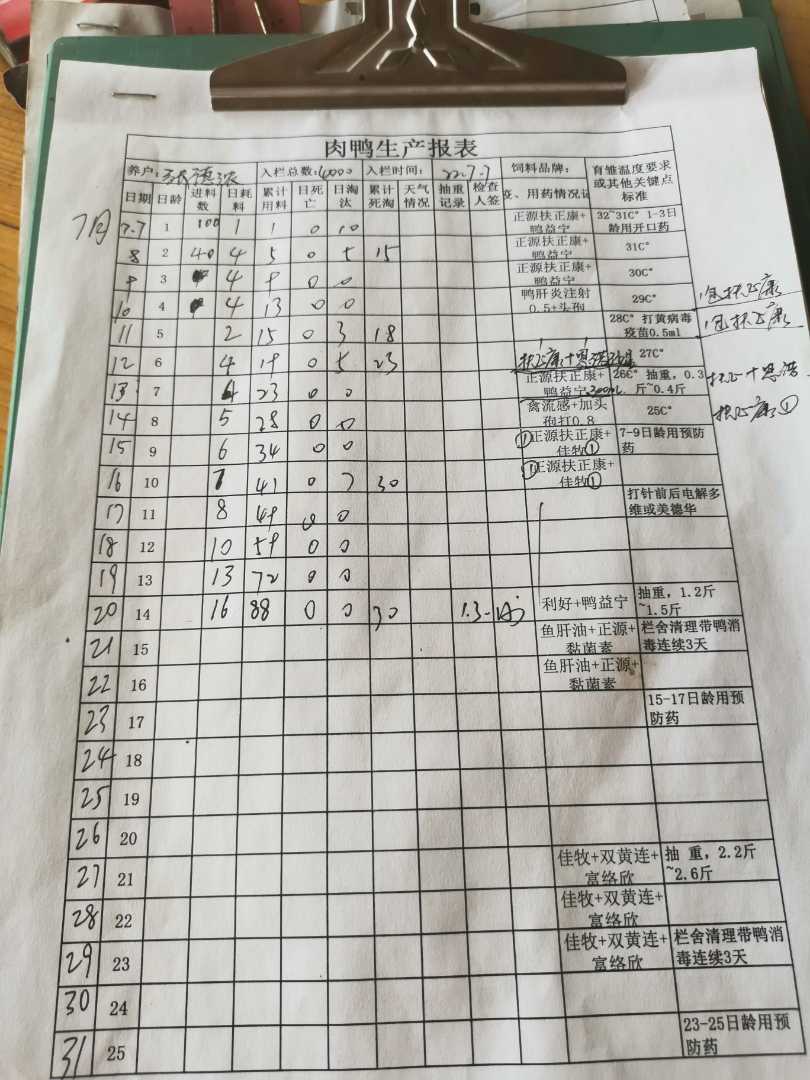 肉鸭生产报表
养户: 入栏总数:4000 入栏时间: 22.7.7 饲料品牌: 育雏温度要求或其他关键点标准
日期 日龄 进料数 日耗料 累计用料 日死亡 日淘汰 累计死淘 天气情况 抽重记录 检查人签 疫、用药情况记
7月
7.7 1 100 1 1 0 10 正源扶正康+鸭益宁 32~31C° 1-3日龄用开口药
8 2 40 4 5 0 5 15 正源扶正康+鸭益宁 31C°
9 3 4 9 0 0 正源扶正康+鸭益宁 30C°
10 4 4 13 0 0 鸭肝炎注射0.5+头孢 29C° 1包扶正康
11 5 2 15 0 3 18 28C° 打黄病毒疫苗0.5ml 1包扶正康
12 6 4 19 0 5 23 扶正康+ 27C°
13 7 4 23 0 0 正源扶正康+鸭益宁 300ml 26C° 抽重,0.3斤~0.4斤 扶正+
14 8 5 28 0 0 禽流感+加头孢打0.8 25C° 扶正康①
15 9 6 34 0 0 ①正源扶正康+佳牧① 7-9日龄用预防药
16 10 7 41 0 7 30 ①正源扶正康+佳牧①
17 11 8 49 0 0 打针前后电解多维或美德华
18 12 10 59 0 0
19 13 13 72 0 0
20 14 16 88 0 0 30 1.3- 利好+鸭益宁 抽重,1.2斤~1.5斤
21 15 鱼肝油+正源+黏菌素 栏舍清理带鸭消毒连续3天
22 16 鱼肝油+正源+黏菌素
23 17 15-17日龄用预防药
24 18
25 19
26 20
27 21 佳牧+双黄连+富络欣 抽 重,2.2斤~2.6斤
28 22 佳牧+双黄连+富络欣
29 23 佳牧+双黄连+富络欣 栏舍清理带鸭消毒连续3天
30 24
31 25 23-25日龄用预防药